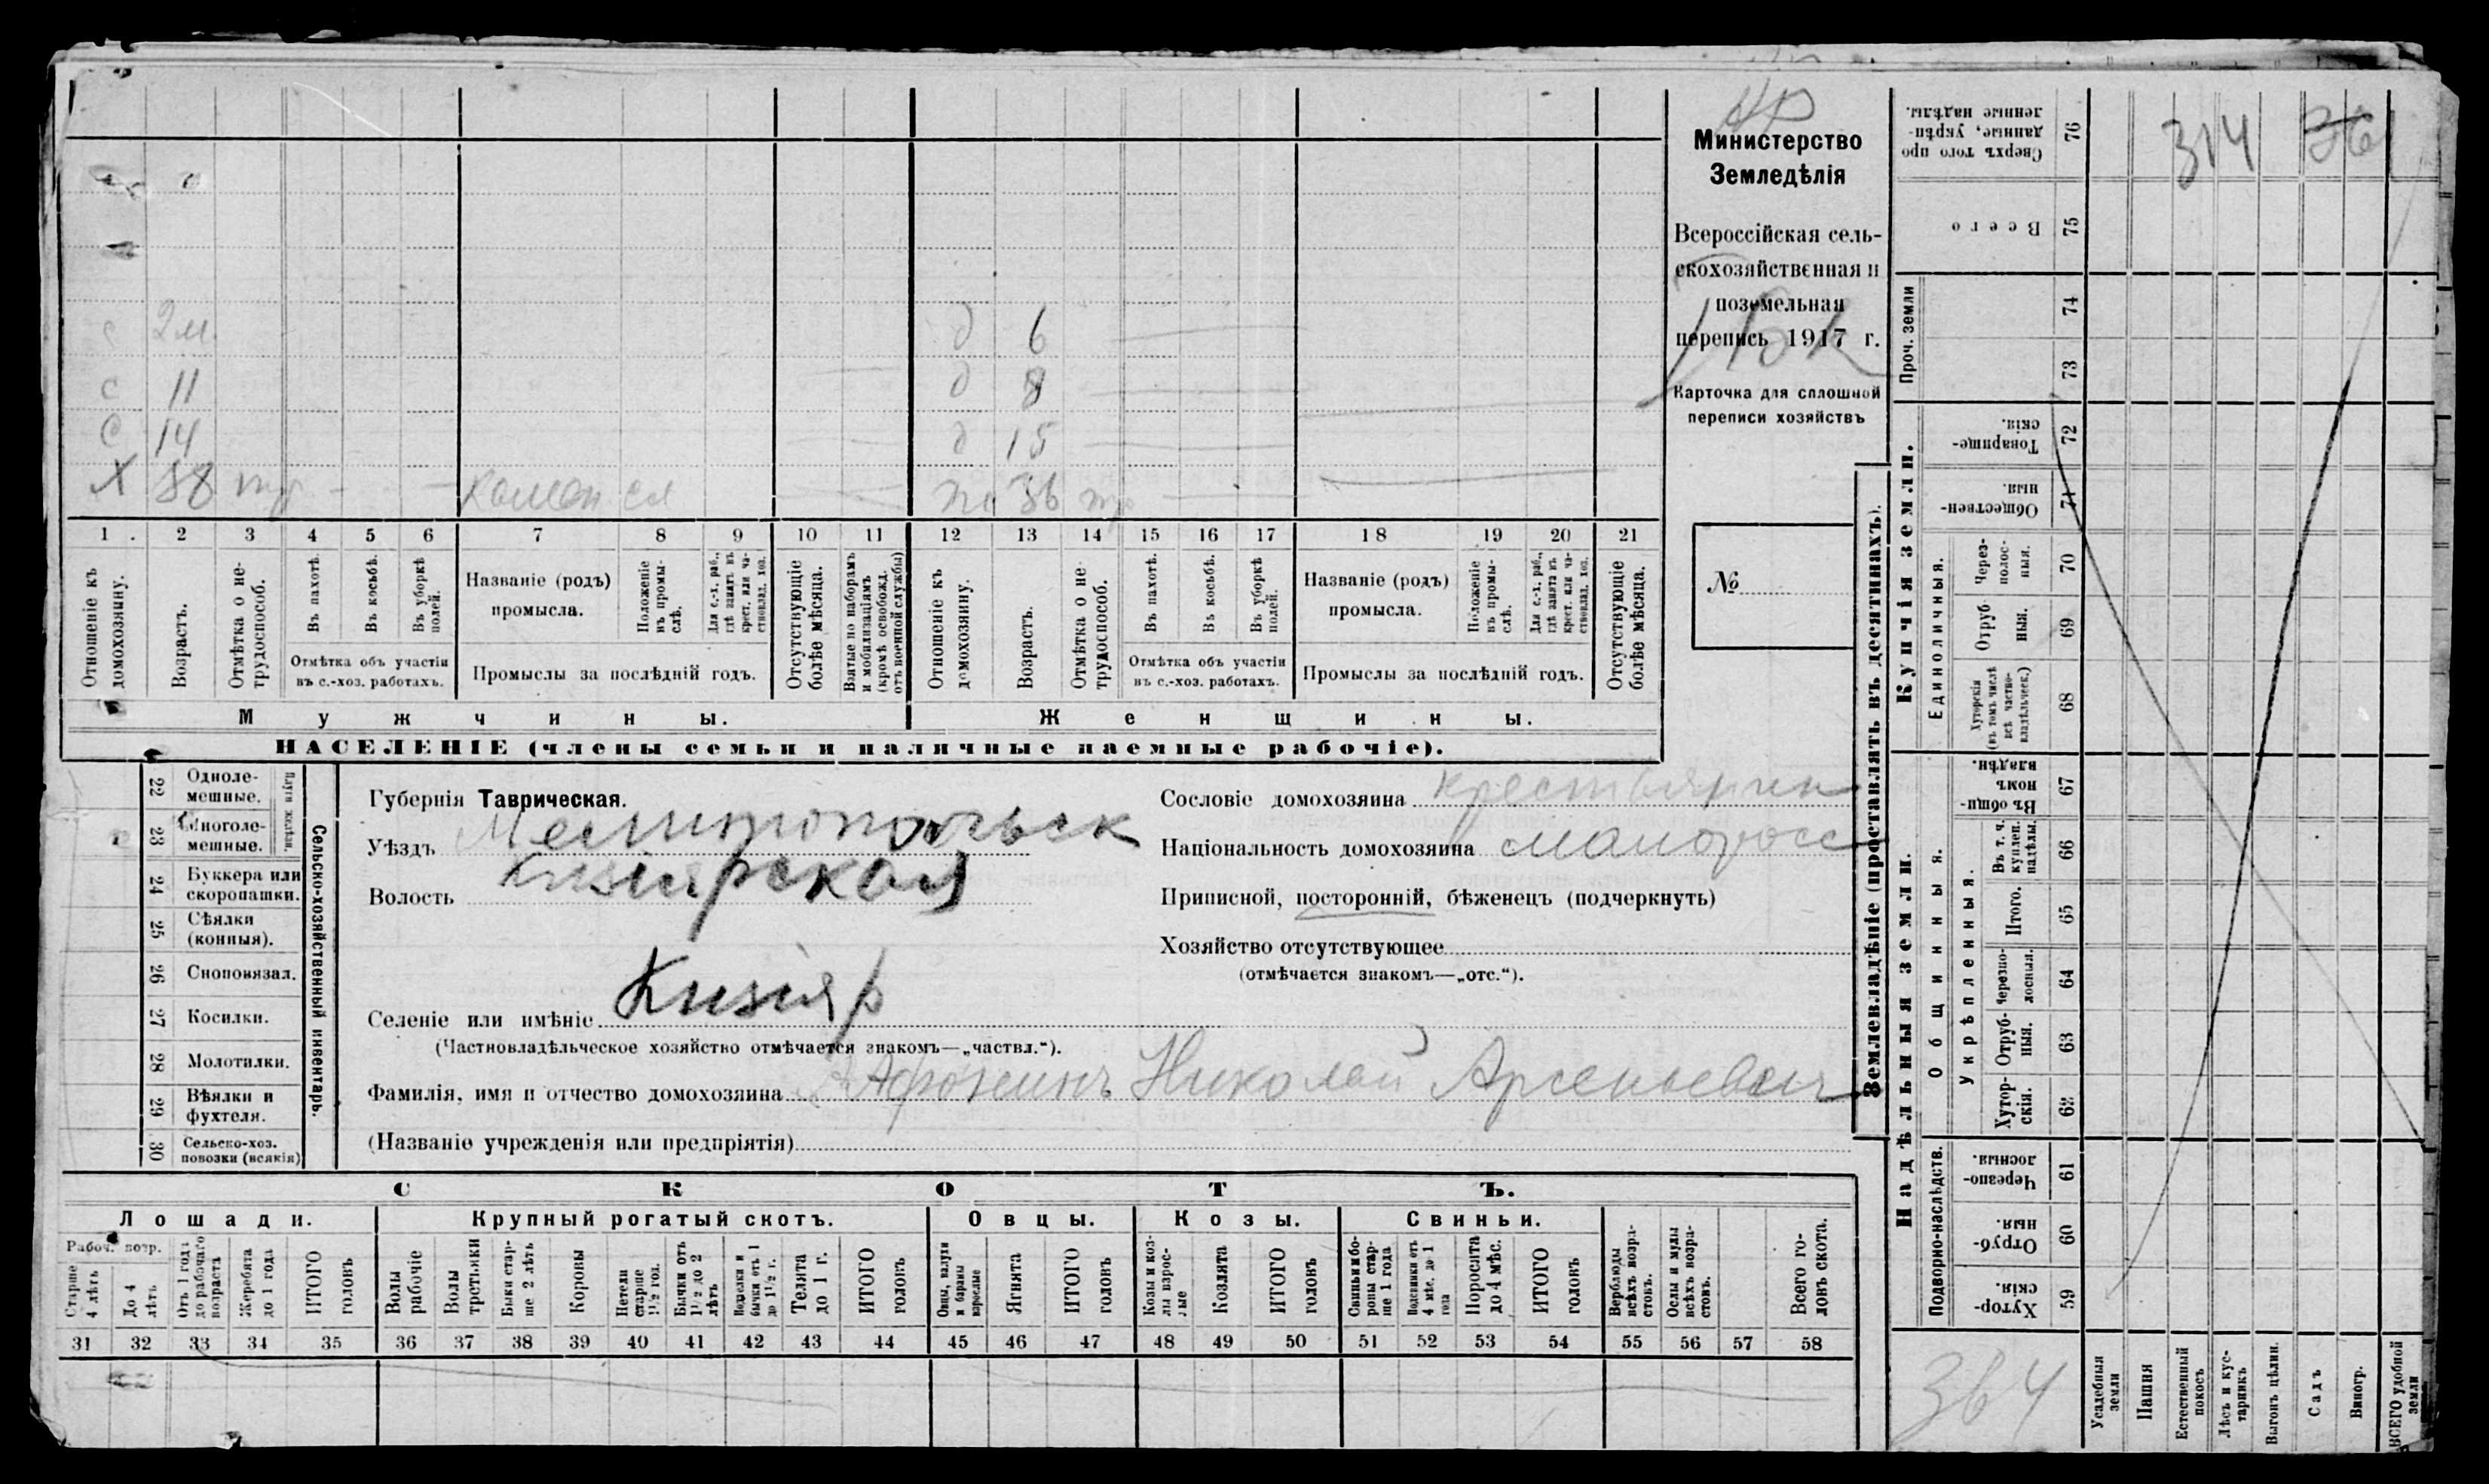 НР
Министерство
Земледѣлія
Всероссійская сель-
скохозяйственная и
поземельная
перепись 1917 г.
Карточка для сплошной
переписи хозяйствъ
№
с 2 м. д 6
с 11 д 8
с 14 д 15
Х 38 тр д 36 тр
1 2 3 4 5 6 7 8 9 10 11 12 13 14 15 16 17 18 19 20 21
Отношеніе къ домохозяину.
Возрастъ.
Отмѣтка о не-трудоспособ.
Въ пахотѣ.
Въ косьбѣ.
Въ уборкѣ полей.
Отмѣтка объ участіи
въ с.-хоз. работахъ.
Названіе (родъ)
промысла.
Положеніе въ промы-слѣ.
Для с.-х. раб., гдѣ занятъ въ крест. или ча-стновлад. хоз.
Промыслы за послѣдній годъ.
Отсутствующіе болѣе мѣсяца.
Взятые по наборамъ и мобилизаціямъ (кромѣ освобожд. отъ военной службы)
Отношеніе къ домохозяину.
Возрастъ.
Отмѣтка о не-трудоспособ.
Въ пахотѣ.
Въ косьбѣ.
Въ уборкѣ полей.
Отмѣтка объ участіи
въ с.-хоз. работахъ.
Названіе (родъ)
промысла.
Положеніе въ промы-слѣ.
Для с.-х. раб., гдѣ занята въ крест. или ча-стновлад. хоз.
Промыслы за послѣдній годъ.
Отсутствующіе болѣе мѣсяца.
Мужчины. Женщины.
НАСЕЛЕНІЕ (члены семьи и наличные наемные рабочіе).
22 Одноле-мешные.
23 Многоле-мешные.
Плуги желѣзн.
24 Буккера или скоропашки.
25 Сѣялки (конныя).
26 Сноповязал.
27 Косилки.
28 Молотилки.
29 Вѣялки и фухтеля.
30 Сельско-хоз. повозки (всякія)
Сельско-хозяйственный инвентарь.
Губернія Таврическая.
Уѣздъ Мелитопольск
Волость Кизіярская
Селеніе или имѣніе Кизіяр
(Частновладѣльческое хозяйство отмѣчается знакомъ—„частвл.“).
Фамилія, имя и отчество домохозяина Афонинъ Николай Арсеньевич
(Названіе учрежденія или предпріятія)
Сословіе домохозяина крестьянин
Національность домохозяина малоросс
Приписной, посторонній, бѣженецъ (подчеркнуть)
Хозяйство отсутствующее
(отмѣчается знакомъ—„отс.“).
СКОТЪ.
Лошади. Крупный рогатый скотъ. Овцы. Козы. Свиньи.
Рабоч. возр.
Старше 4 лѣтъ
До 4 лѣтъ
Отъ 1 года до рабочаго возраста
Жеребята до 1 года
ИТОГО головъ
Волы рабочіе
Волы третьяки
Быки стар-ше 2 лѣтъ
Коровы
Нетели старше 1½ год.
Бычки отъ 1½ до 2 лѣтъ
Телки и бычки отъ 1 до 1½ г.
Телята до 1 г.
ИТОГО головъ
Овцы, валухи и бараны взрослые
Ягнята
ИТОГО головъ
Козы и коз-лы взрос-лые
Козлята
ИТОГО головъ
Свиньи и бо-ровы стар-ше 1 года
Подсвинки отъ 4 мѣс. до 1 года
Поросята до 4 мѣс.
ИТОГО головъ
Верблюды всѣхъ возра-стовъ.
Ослы и мулы всѣхъ возра-стовъ.
Всего го-ловъ скота.
31 32 33 34 35 36 37 38 39 40 41 42 43 44 45 46 47 48 49 50 51 52 53 54 55 56 57 58
Землевладѣніе (проставлять въ десятинахъ).
314 36
Сверхъ того про-данные, укрѣп-ленные надѣлы. 76
Всего 75
Проч. земли 74 73
Купчія земли.
Товарище-скія. 72
Обществен-ныя. 71
Единоличныя.
Через-полос-ныя. 70
Отруб-ныя. 69
Хуторскія (въ томъ числѣ всѣ частно-владѣльческ.) 68
Надѣльныя земли.
Общинныя.
Въ общин-номъ владѣн. 67
Укрѣпленныя.
Въ т. ч. куплен. надѣлы. 66
Итого. 65
Черезпо-лосныя. 64
Отруб-ныя. 63
Хутор-скія. 62
Подворно-наслѣдств.
Черезпо-лосныя. 61
Отруб-ныя. 60
Хутор-скія. 59
364
Усадебныя земли
Пашня
Естественный покосъ
Лѣсъ и кус-тарникъ
Выгонъ цѣлин.
Садъ
Виногр.
ВСЕГО удобной земли